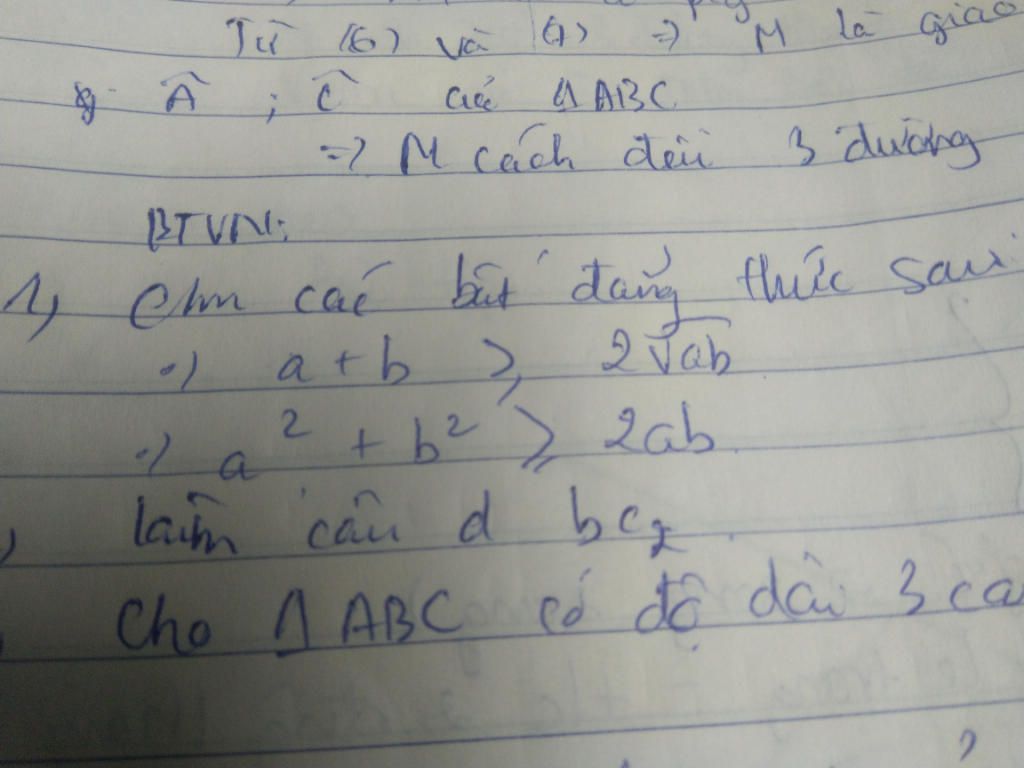 Từ (6) và (7) => M là giao
Â ; Ĉ của Δ ABC
=> M cách đều 3 đường
BTVN:
1) Cm các bất đẳng thức sau:
·) a + b ≥ 2√ab
·) a² + b² ≥ 2ab
) làm câu d b
Cho Δ ABC có độ dài 3 cạ